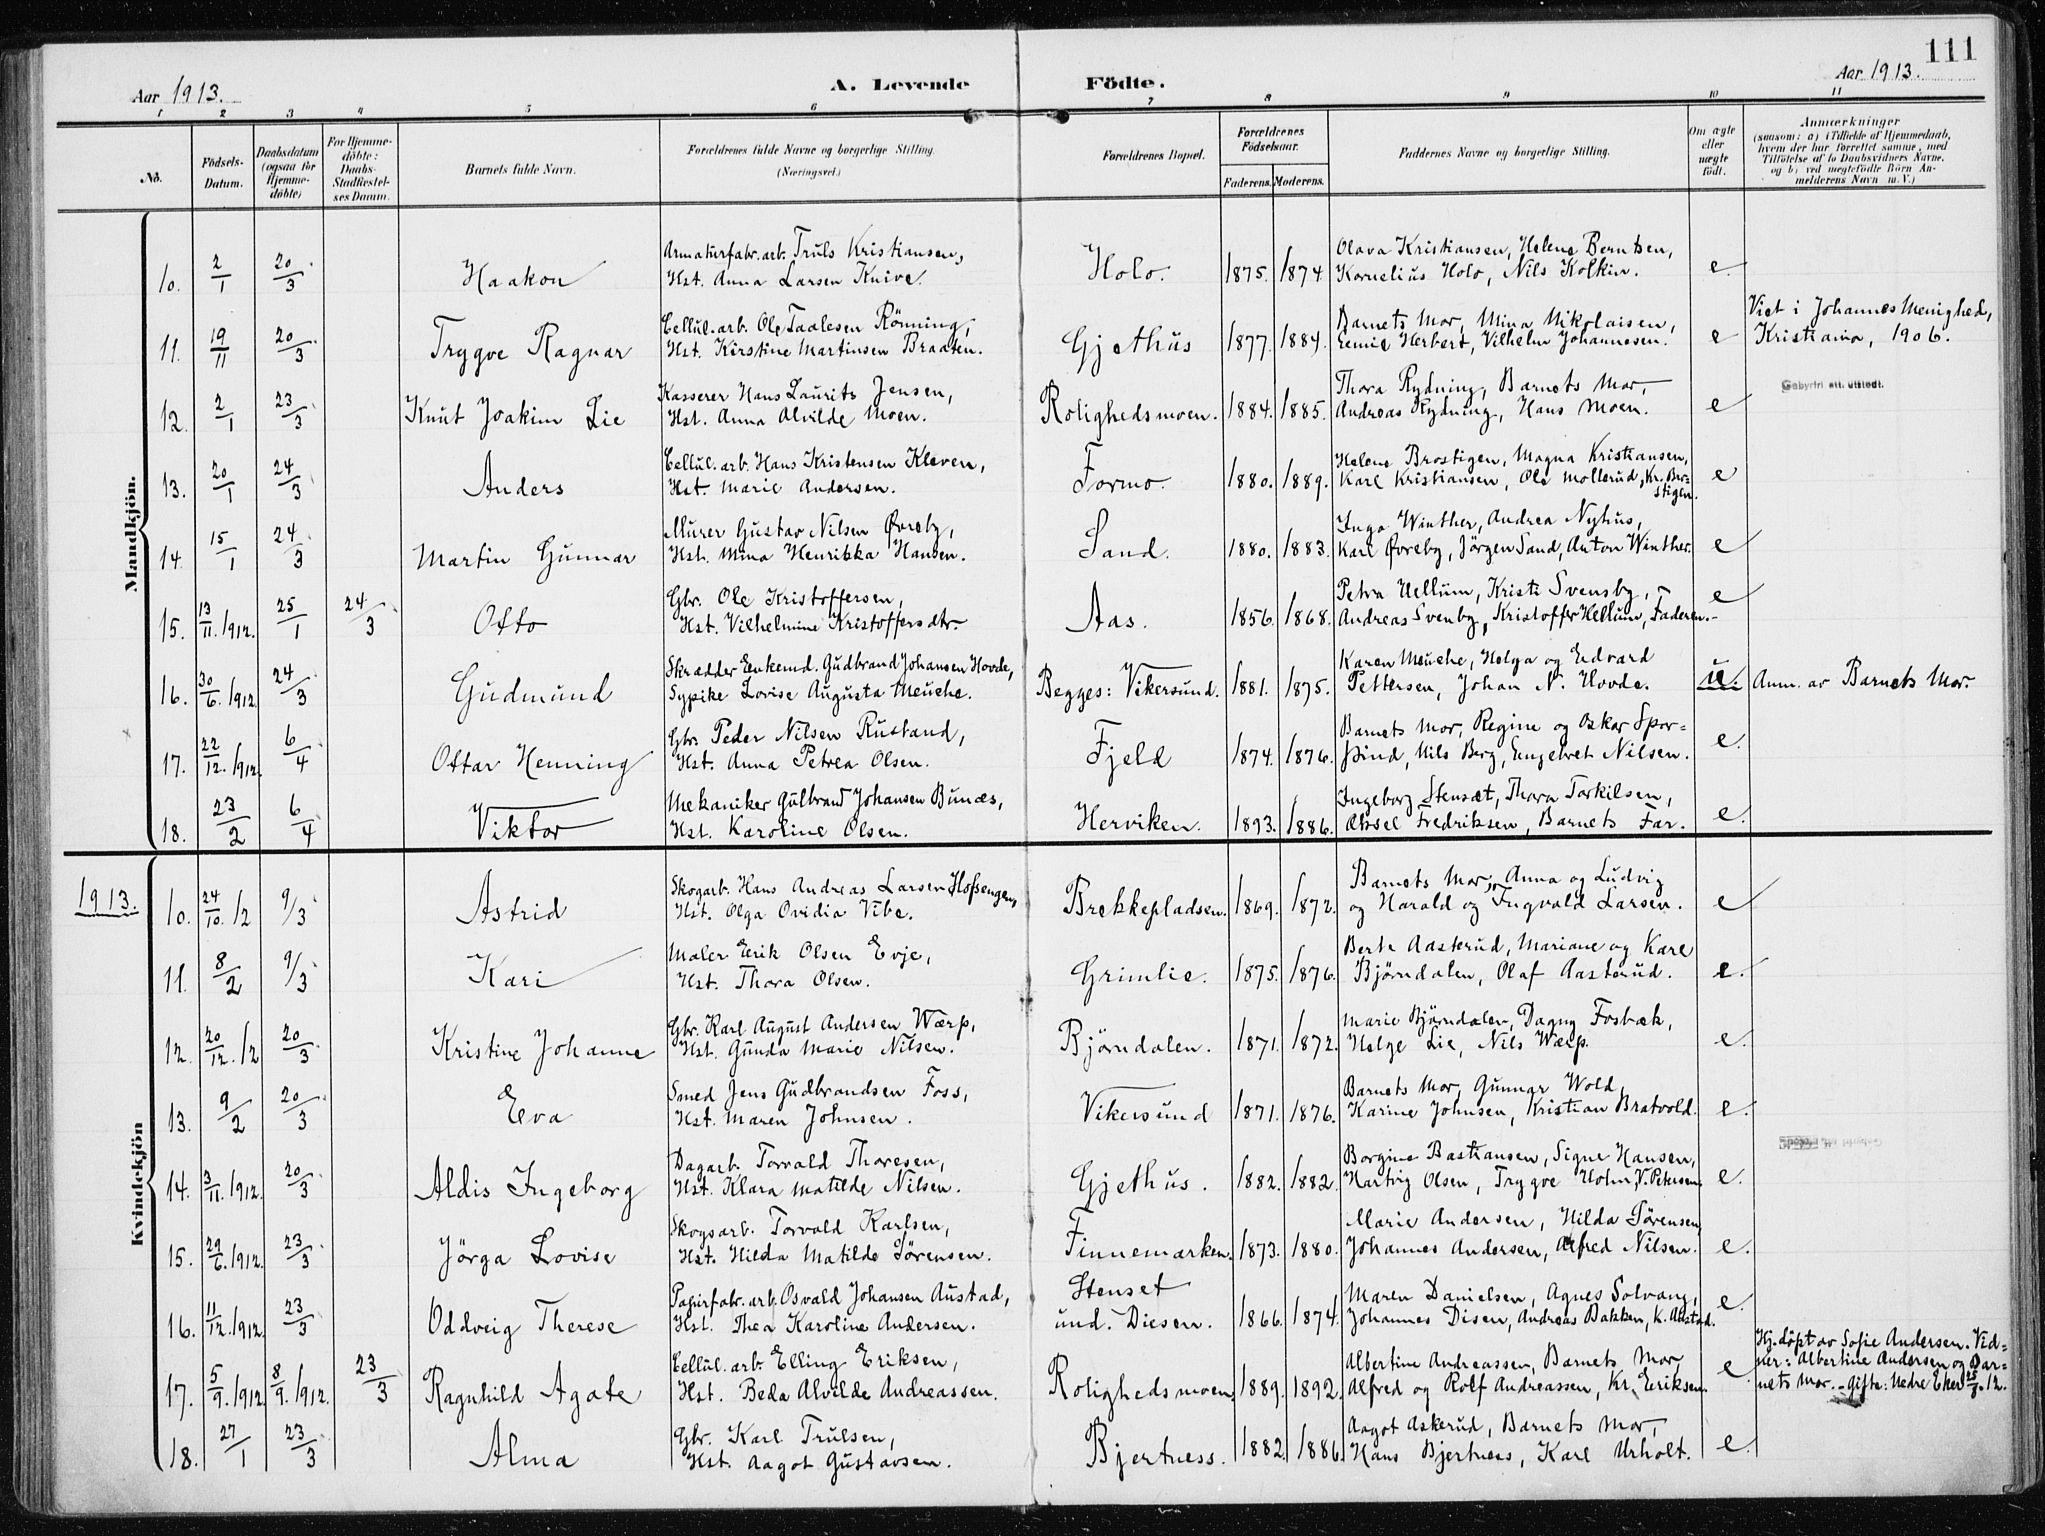 111
Aar 1913. A. Levende Födte. Aar 1913.
1 2 3 4 5 6 7 8 9 10 11
No. Födsels-Datum. Daabsdatum (ogsaa for Hjemme-döbte) For Hjemme-döbte: Daabs-Stadfæstel-ses Datum. Barnets fulde Navn. Forældrenes fulde Navne og borgerlige Stilling. (Næringsvei.) Forældrenes Bopæl. Forældrenes Födselsaar. Faderens. Moderens. Faddernes Navne og borgerlige Stilling. Om ægte eller uægte födt. Anmærkninger (saasom: a) i Tilfælde af Hjemmedaab, hvem der har forrettet samme, med Tilföielse af to Daabsvidners Navne, og b) ved uægtefödte Börn An-melderens Navn m. V.)
Mandkjön.
Armaturfabr. arb. Truls Kristiansen, Olava Kristiansen, Helene Berntsen,
10. 2/1 20/3 Haakon Hst. Anna Larsen Knive. Holo. 1875. 1874 Kornelius Holo, Nils Kolkin. e.
Cellul. arb. Ole Taalesen Rönning, Barnets Mor, Mina Nikolaisen, Viet i Johannes Menighed,
11. 19/11 20/3 Trygve Ragnar Hst. Kirstine Martinsen Braaten. Gjethus 1877. 1884. Eemil Herbert, Vilhelm Johannesen. e Kristiania, 1906.
Kasserer Hans Laurits Jensen, Thora Rydning, Barnets Mor, Gebyrfri att. utstedt.
12. 2/1 23/3 Knut Joakim Lie Hst. Anna Alvilde Moen. Rolighedsmoen. 1884. 1885. Andreas Rydning, Hans Moen. e
Cellul. arb. Hans Kristensen Kleven, Helene Brostigen, Magna Kristiansen,
13. 20/1 24/3 Anders Hst. Marie Andersen. Formo. 1880. 1889. Karl Kristiansen, Ole Mollerud, Kr. Bro-stigen. e
Murer Gustav Nilsen Øvreby, Inga Winther, Andrea Nyhus,
14. 15/1 24/3 Martin Gunnar Hst. Mina Henrikka Hansen. Sand. 1880. 1883. Karl Øvreby, Jörgen Sand, Anton Winther. e
Gbr. Ole Kristoffersen, Petra Hellum, Kristi Svensby,
15. 13/11. 1912. 25/1 24/3 Otto Hst. Vilhelmine Kristoffersdtr. Aas. 1856. 1868. Andreas Svenby, Kristoffer Hellum, Faderen. e
Skrædder Enkemd. Gudbrand Johansen Hovde, Karen Meuche, Helga og Edvard
16. 30/6. 1912. 24/3 Gudmund Sypike Lovise Augusta Meuche. Begges: Vikersund. 1881. 1875. Pettersen, Johan N. Hovde. u. Anm. av Barnets Mor.
Gbr. Peder Nilsen Rustand, Barnets Mor, Regine og Oskar Spor-
17. 22/12. 1912. 6/4 Ottar Henning Hst. Anna Petrea Olsen. Fjeld 1874. 1876. Nils Berg, Engebret Nilsen. e.
Mekaniker Gulbrand Johansen Bunæs, Ingeborg Stensæt, Thora Torkilsen,
18. 23/2 6/4 Viktor Hst. Karoline Olsen. Herviken. 1893. 1886. Aksel Fredriksen, Barnets Far. e.
1913.
Kvindekjön
Skogarb. Hans Andreas Larsen Hofsengen, Barnets Mor, Anna og Ludvig
10. 24/10. 12 9/3 Astrid Hst. Olga Ovidia Vibe. Brekkepladsen. 1869. 1872. og Harald og Ingvald Larsen. e
Maler Eerik Olsen Evje, Berte Aasterud, Mariane og Karl
11. 8/2 9/3 Kari Hst. Thora Olsen. Grimlie. 1875. 1876. Björndalen, Olaf Aasterud. e.
Gbr. Karl August Andersen Wærp, Marie Björndalen, Dagny Fosbæk,
12. 20/12. 12 20/3 Kristine Johanne Hst. Gunda Marie Nilsen. Björndalen. 1871. 1872. Helge Lie, Nils Wærp. e.
Smed Jens Gudbrandsen Foss, Barnets Mor, Gunnar Wold,
13. 9/2 20/3 Eva Hst. Maren Johnsen. Vikersund 1871. 1876. Karine Johnsen, Kristian Bratvold. e.
Dagarb. Torvald Thoresen, Borgine Bastiansen, Signe Hansen,
14. 3/11. 1912. 20/3 Aldis Ingeborg Hst. Klara Matilde Nilsen. Gjethus. 1882. 1882. Hartvig Olsen, Trygve Holm, V. Petersen. e.
Skogsarb. Torvald Karlsen, Marie Andersen, Hilda Sörensen,
15. 29/6. 1912. 23/3 Jörga Lovise Hst. Hilda Matilde Sörensen. Finnemarken. 1873. 1880. Johannes Andersen, Alfred Nilsen. e.
Papirfabr. arb. Osvald Johansen Austad, Stenset Maren Danielsen, Agnes Solvang,
16. 11/12. 1912. 23/3 Oddveig Therese Hst. Thea Karoline Andersen. und. Diesen. 1866. 1874. Johannes Disen, Andreas Bakken, K. Austad. e.
Cellul. arb. Elling Eriksen, Albertine Andreassen, Barnets Mor, Hj. döpt av Sofie Andersen. Vid-
17. 5/9. 1912. 8/9. 1912. 23/3 Ragnhild Agate Hst. Beda Alvilde Andreassen. Rolighedsmoen. 1889. 1892. Alfred og Rolf Andreassen, Kr. Eriksen. e ner: Albertine Andersen og Bar-
nets Mor. - Gifte: Nedre Eker
Gbr. Karl Trulsen, Aagot Askerud, Barnets Mor,
18. 27/1 23/3 Alma Hst. Aagot Gustavsen. Bjertness. 1882. 1886. Hans Bjertness, Karl Urholt. e.